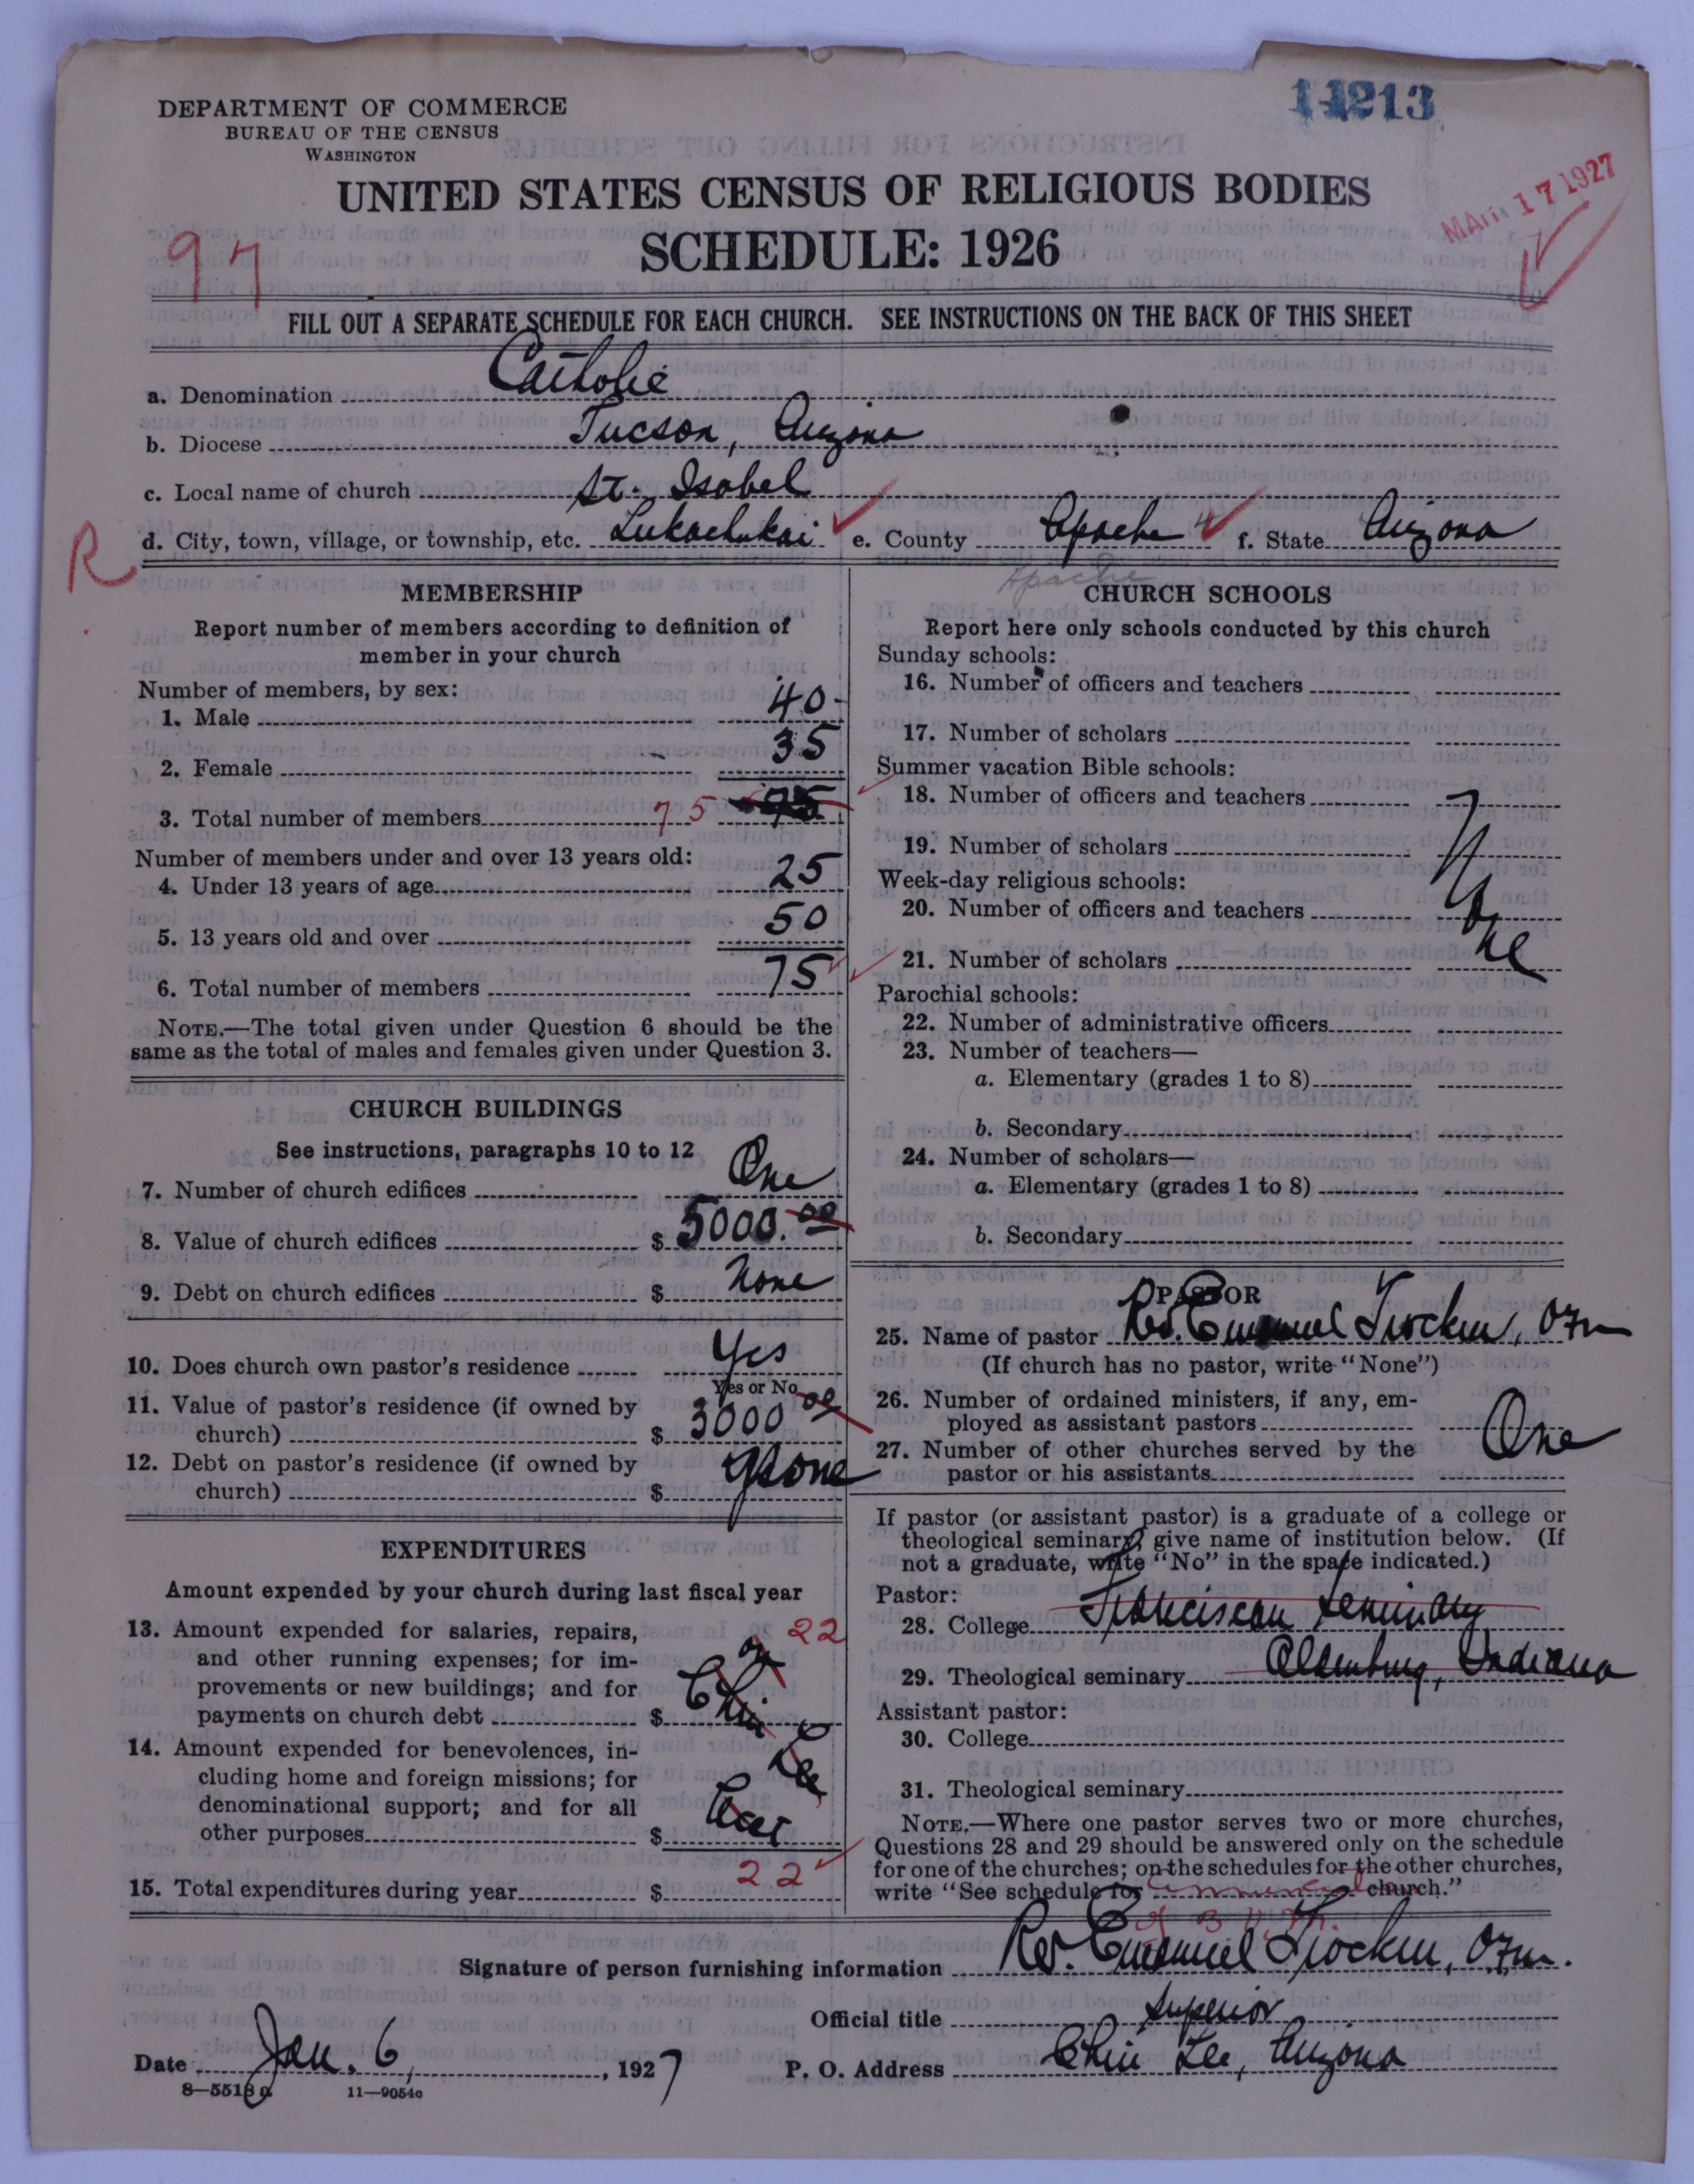 DEPARTMENT OF COMMERCE
BUREAU OF THE CENSUS
WASHINGTON
14213
MAR 17 1927
UNITED STATES CENSUS OF RELIGIOUS BODIES
SCHEDULE: 1926
97
FILL OUT A SEPARATE SCHEDULE FOR EACH CHURCH. SEE INSTRUCTIONS ON THE BACK OF THIS SHEET
a. Denomination Catholic
b. Diocese Tucson, Arizona
c. Local name of church St. Isabel
R
d. City, town, village, or township, etc. Lukachukai e. County Apache f. State Arizona
Apache
MEMBERSHIP
Report number of members according to definition of
member in your church
Number of members, by sex:
1. Male 40
2. Female 35
3. Total number of members 75 75
Number of members under and over 13 years old:
4. Under 13 years of age 25
5. 13 years old and over 50
6. Total number of members 75
NOTE.—The total given under Question 6 should be the
same as the total of males and females given under Question 3.
CHURCH BUILDINGS
See instructions, paragraphs 10 to 12
7. Number of church edifices One
8. Value of church edifices $ 5000.00
9. Debt on church edifices $ None
10. Does church own pastor's residence Yes
Yes or No
11. Value of pastor's residence (if owned by
church) $ 3000 00
12. Debt on pastor's residence (if owned by
church) $ None
EXPENDITURES
Amount expended by your church during last fiscal year
13. Amount expended for salaries, repairs, 22
and other running expenses; for im-
provements or new buildings; and for
payments on church debt $ Chin
14. Amount expended for benevolences, in- Lee
cluding home and foreign missions; for
denominational support; and for all
other purposes $
15. Total expenditures during year $ 22
CHURCH SCHOOLS
Report here only schools conducted by this church
Sunday schools:
16. Number of officers and teachers
17. Number of scholars
Summer vacation Bible schools:
18. Number of officers and teachers
19. Number of scholars
Week-day religious schools:
20. Number of officers and teachers
None
21. Number of scholars
Parochial schools:
22. Number of administrative officers
23. Number of teachers—
a. Elementary (grades 1 to 8)
b. Secondary
24. Number of scholars—
a. Elementary (grades 1 to 8)
b. Secondary
PASTOR
25. Name of pastor Rev. Emanuel Trockur, OFM
(If church has no pastor, write "None")
26. Number of ordained ministers, if any, em-
ployed as assistant pastors One
27. Number of other churches served by the
pastor or his assistants
If pastor (or assistant pastor) is a graduate of a college or
theological seminary, give name of institution below. (If
not a graduate, write "No" in the space indicated.)
Pastor:
28. College Franciscan Seminary
29. Theological seminary Oldenburg, Indiana
Assistant pastor:
30. College
31. Theological seminary
NOTE.—Where one pastor serves two or more churches,
Questions 28 and 29 should be answered only on the schedule
for one of the churches; on the schedules for the other churches,
write "See schedule for church."
of B V M.
Signature of person furnishing information Rev. Emanuel Trockur, OFM.
Official title Superior
Date Jan. 6, 1927 P. O. Address Chin Lee, Arizona
8—5518a 11—9054c